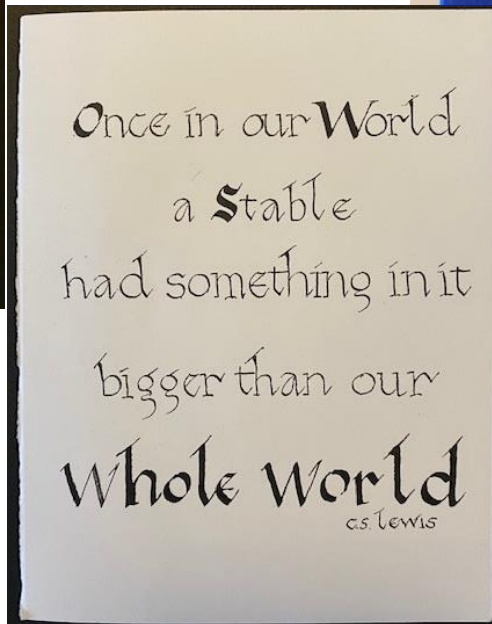 Once in our World
a Stable
had something in it
bigger than our
Whole World
C.S. Lewis